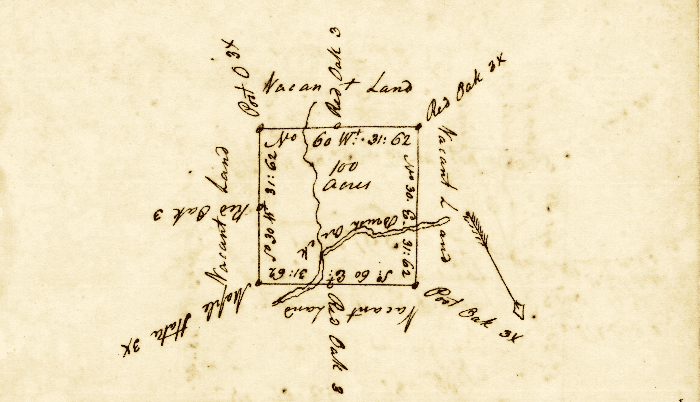 Post O 3X
Red Oak 3
Red Oak 3X
Vacant Land
No 60 Wt. 31:62
100
Acres
So 30 W 31:62
No 30 E. 31:62
Vacant Land
Red Oak 3
Vacant Land
Brush Creek
So 60 Et. 31:62
Maple Stake 3X
Vacant Land
Red Oak 3
Post Oak 3X